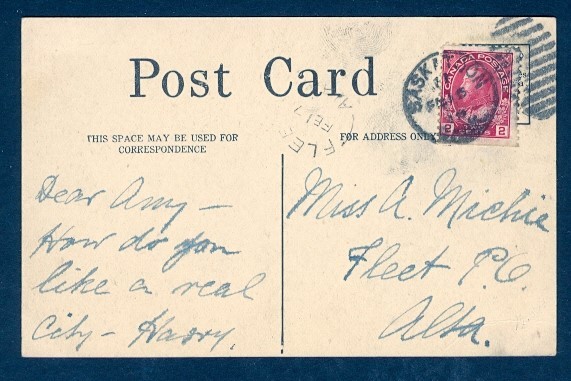 Post Card
THIS SPACE MAY BE USED FOR
CORRESPONDENCE
FOR ADDRESS ONLY
CANADA POSTAGE
2 CENTS 2
SASKATOON
FLEET
FE 17
Dear Amy –
How do you
like a real
city – Harry.
Miss A. Michie
Fleet P.O.
Alta.